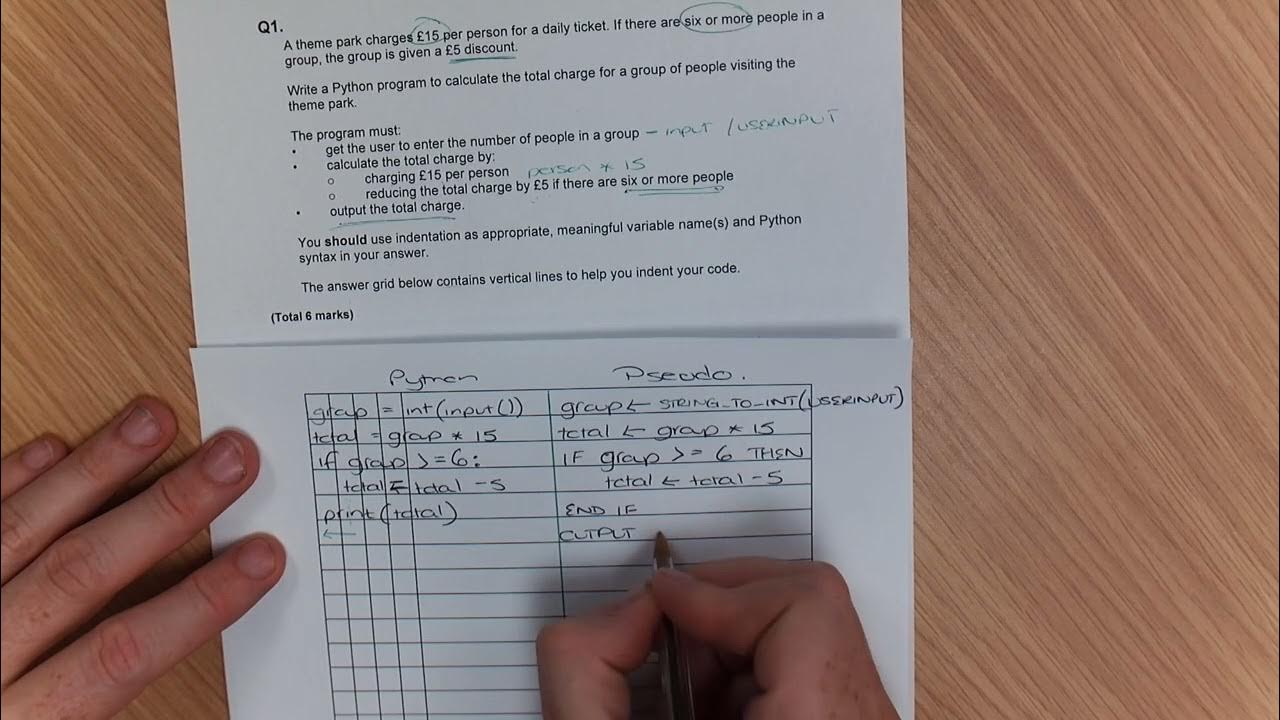 Q1.
A theme park charges £15 per person for a daily ticket. If there are six or more people in a
group, the group is given a £5 discount.
Write a Python program to calculate the total charge for a group of people visiting the
theme park.
The program must:
• get the user to enter the number of people in a group – INPUT / USERINPUT
• calculate the total charge by:
o charging £15 per person person * 15
o reducing the total charge by £5 if there are six or more people
• output the total charge.
You should use indentation as appropriate, meaningful variable name(s) and Python
syntax in your answer.
The answer grid below contains vertical lines to help you indent your code.
(Total 6 marks)
Python Pseudo.
group = int(input()) group ← STRING_TO_INT(USERINPUT)
total = group * 15 total ← group * 15
if group >= 6: IF group >= 6 THEN
total = total - 5 total ← total - 5
print(total) END IF
← OUTPUT